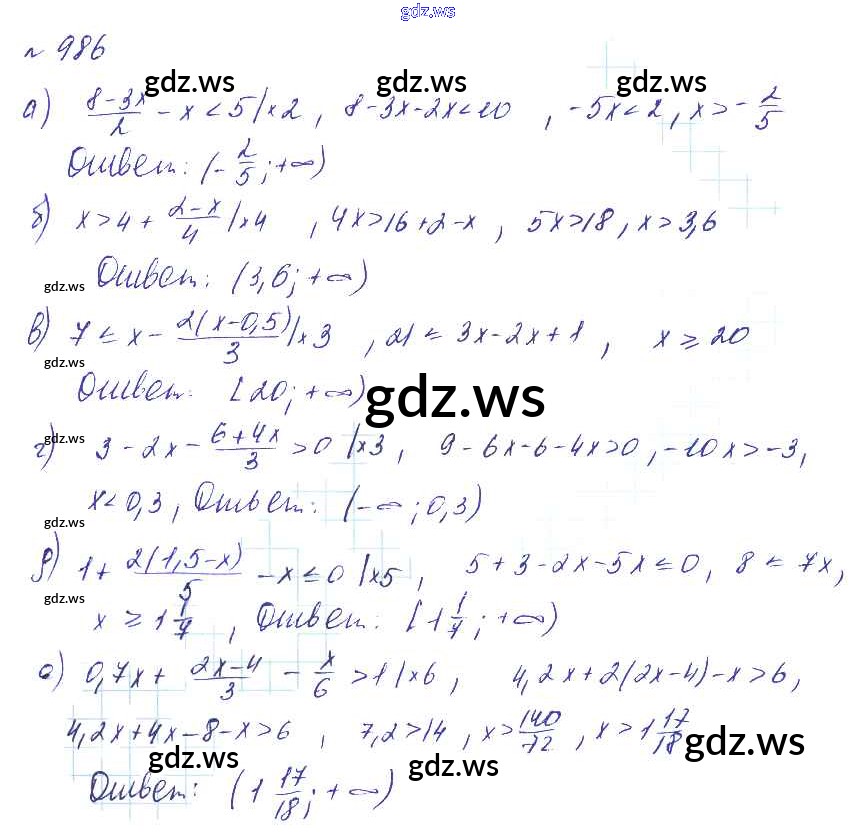 gdz.ws
№ 986
gdz.ws gdz.ws gdz.ws
а) (8-3x)/2 - x < 5 |×2 , 8-3x-2x<10 , -5x<2 , x>-2/5
Ответ: (-2/5; +∞)
б) x>4 + (2-x)/4 |×4 , 4x>16+2-x , 5x>18 , x>3,6
gdz.ws Ответ: (3,6; +∞)
в) 7 ≤ x - 2(x-0,5)/3 |×3 , 21 ≤ 3x-2x+1 , x ≥ 20
gdz.ws
Ответ: [20; +∞) gdz.ws
г) 3-2x - (6+4x)/3 >0 |×3 , 9-6x-6-4x>0 , -10x>-3,
x<0,3 , Ответ: (-∞; 0,3)
gdz.ws
д) 1+ 2(1,5-x)/5 - x ≤ 0 |×5 , 5+3-2x-5x≤0, 8 ≤ 7x,
gdz.ws
x ≥ 1 1/7 , Ответ: [1 1/7; +∞)
е) 0,7x + (2x-4)/3 - x/6 >1 |×6 , 4,2x+2(2x-4)-x>6,
4,2x+4x-8-x>6 , 7,2>14 , x>140/72 , x>1 17/18
gdz.ws gdz.ws gdz.ws
Ответ: (1 17/18; +∞)